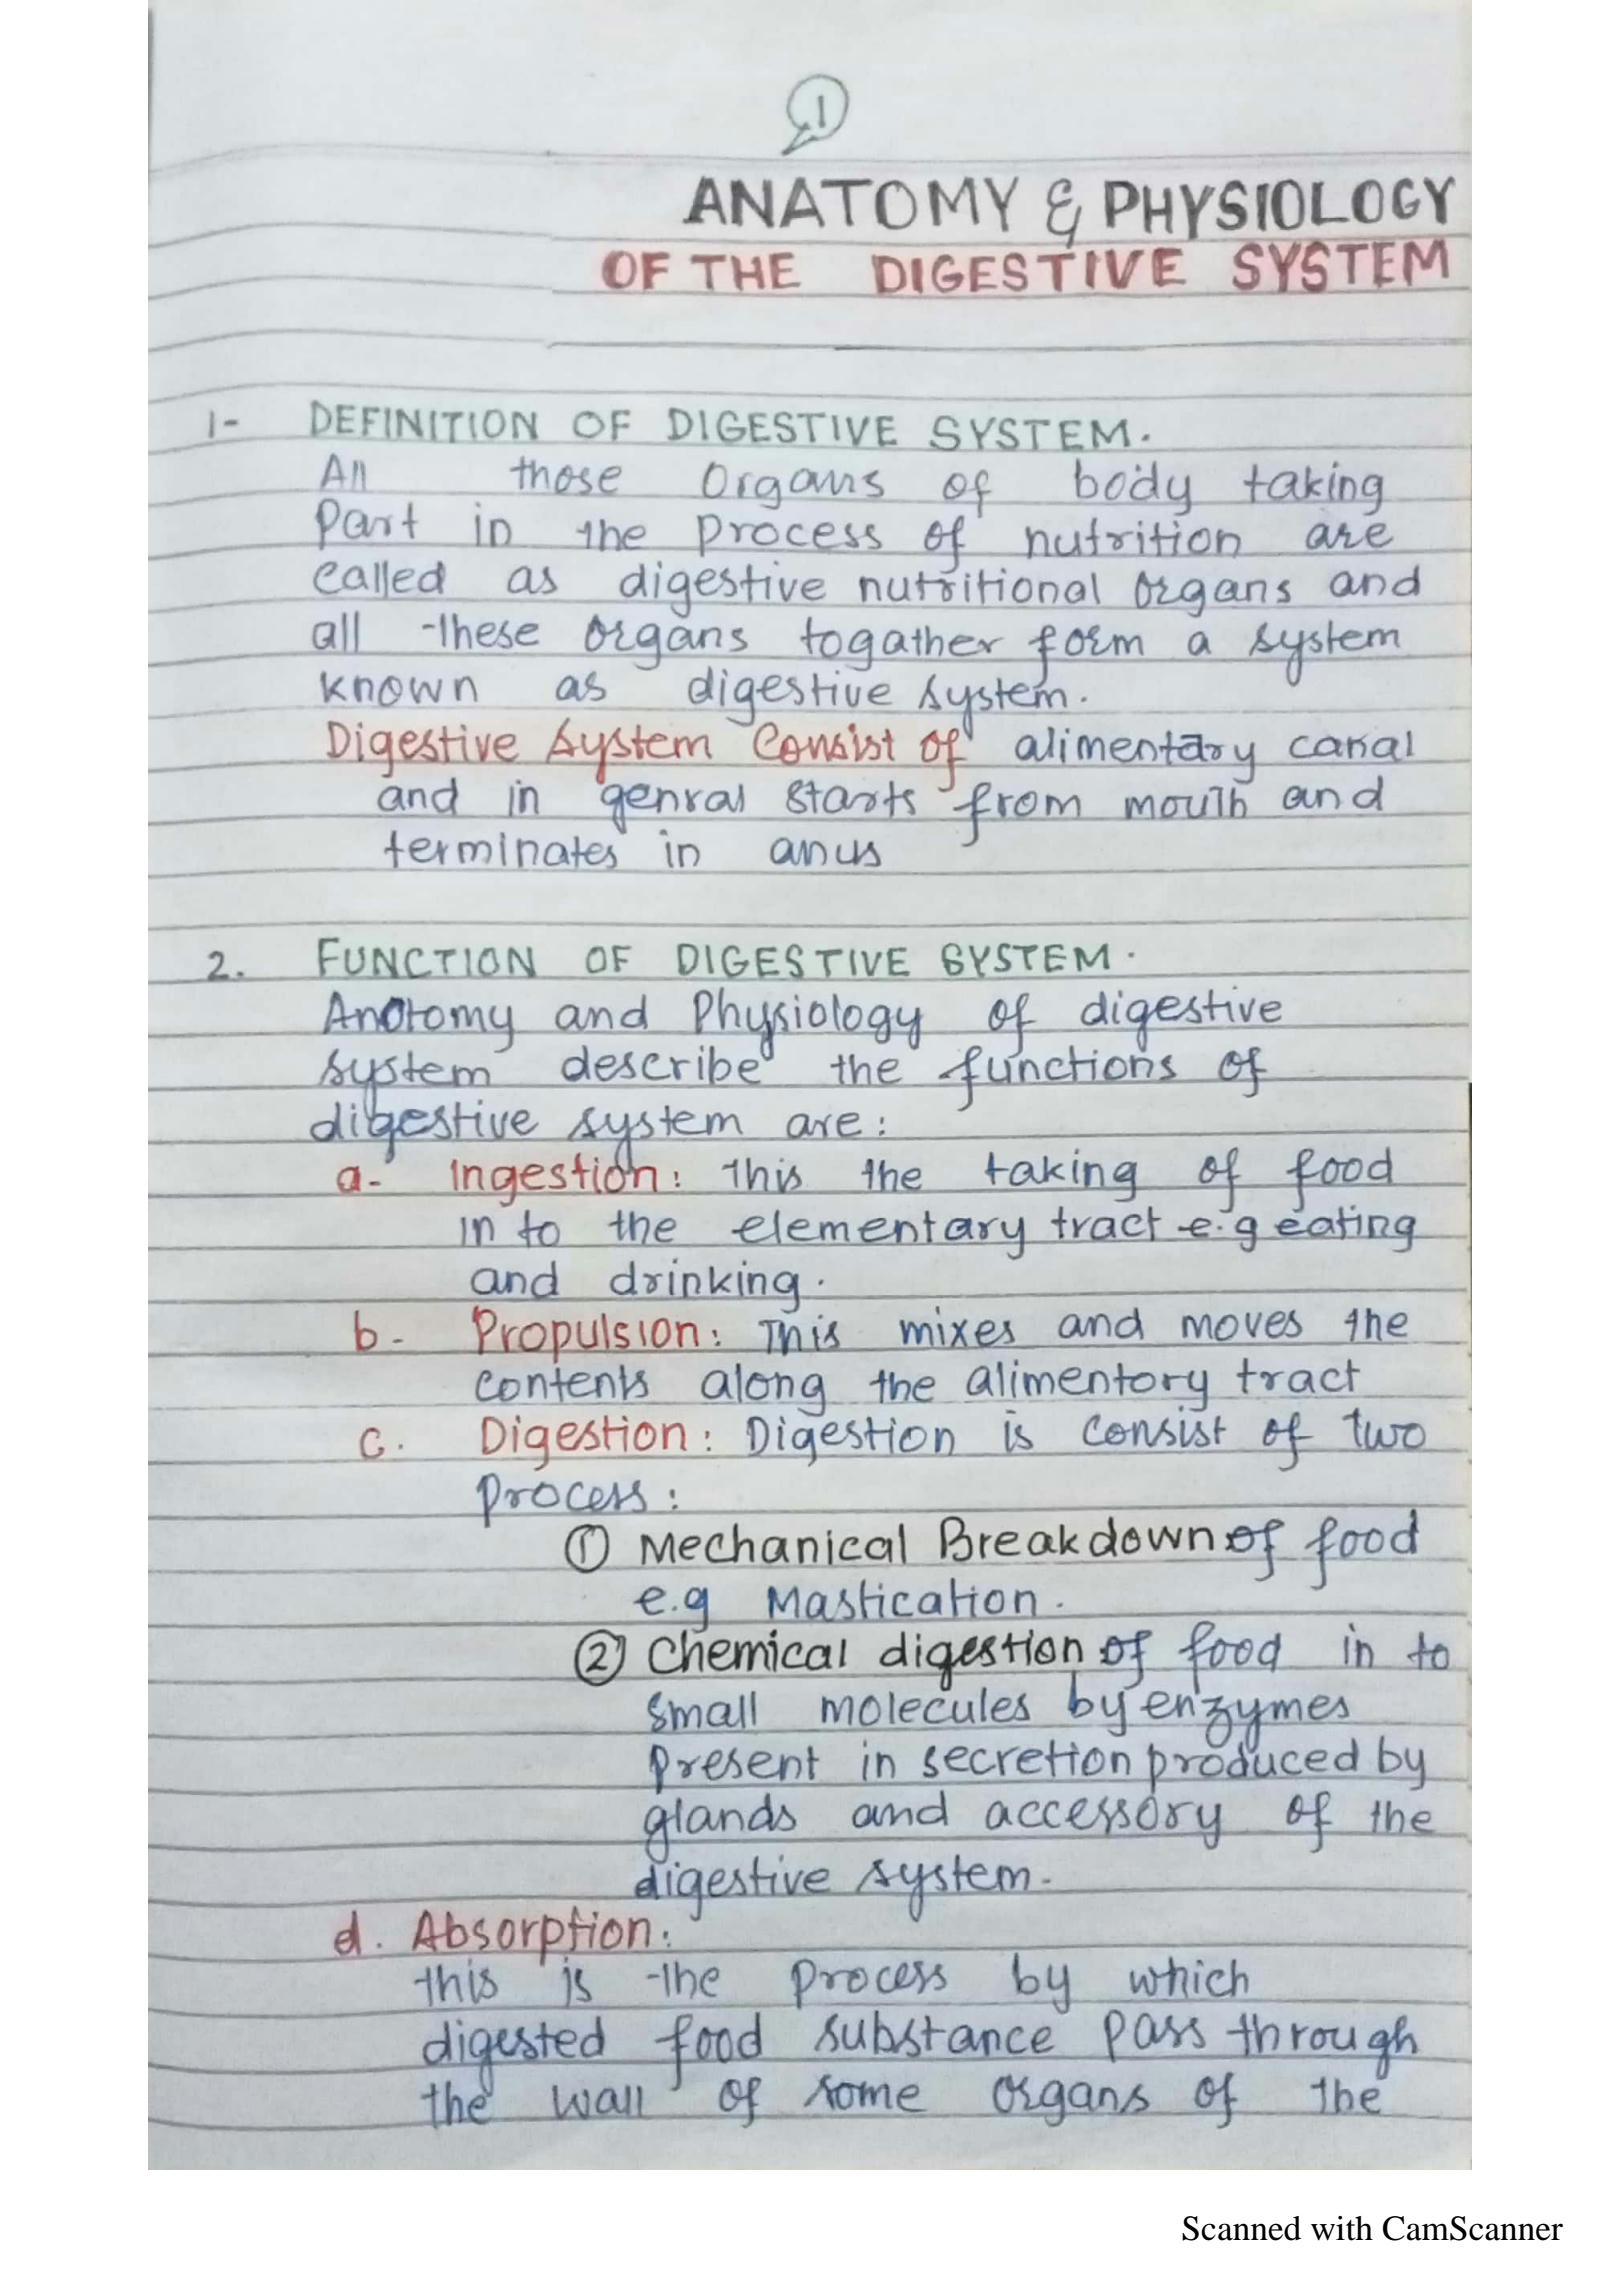 1
ANATOMY & PHYSIOLOGY
OF THE DIGESTIVE SYSTEM
1- DEFINITION OF DIGESTIVE SYSTEM.
All those Organs of body taking
Part in the Process of nutrition are
called as digestive nutritional organs and
all these organs togather form a system
known as digestive system.
Digestive System Consist of alimentary canal
and in genral starts from mouth and
terminates in anus
2. FUNCTION OF DIGESTIVE SYSTEM.
Anatomy and Physiology of digestive
system describe the functions of
digestive system are:
a- Ingestion: This the taking of food
in to the elementary tract e.g eating
and drinking.
b- Propulsion: This mixes and moves the
contents along the alimentory tract
c. Digestion: Digestion is consist of two
Process:
① Mechanical Breakdown of food
e.g Mastication.
② Chemical digestion of food in to
small molecules by enzymes
Present in secretion produced by
glands and accessory of the
digestive system.
d. Absorption:
this is the process by which
digested food substance Pass through
the wall of some organs of the
Scanned with CamScanner